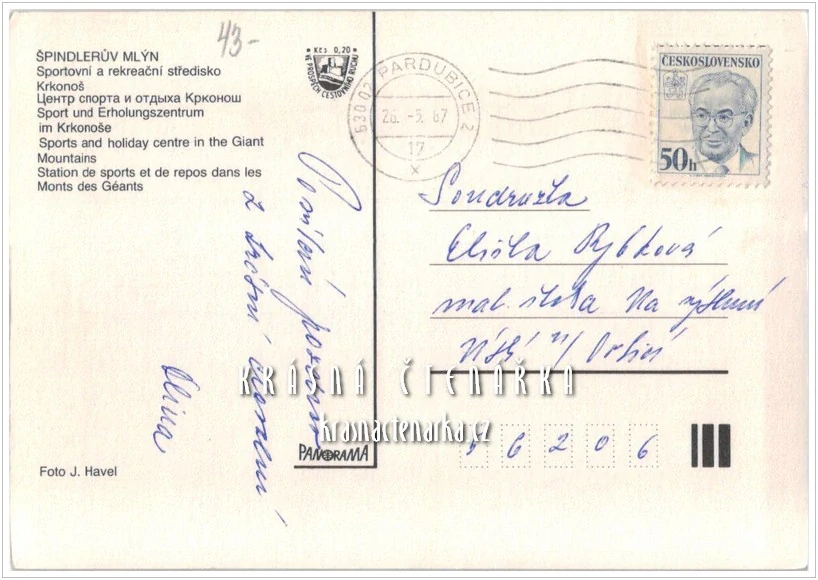 43-
ŠPINDLERŮV MLÝN
Sportovní a rekreační středisko
Krkonoš
Центр спорта и отдыха Крконош
Sport und Erholungszentrum
im Krkonoše
Sports and holiday centre in the Giant
Mountains
Station de sports et de repos dans les
Monts des Géants
Kčs 0,20
VE PROSPĚCH CESTOVNÍHO RUCHU
530 02 PARDUBICE 2
26.-5. 87
17
x
ČESKOSLOVENSKO
50h
Posílám pozdrav
z
Jiřina
Soudružka
Eliška Rybková
mat. škola Na výsluní
Ústí n/ Orlicí
56206
KRÁSNÁ ČTENÁŘKA
krasnactenarka.cz
PANORAMA
Foto J. Havel